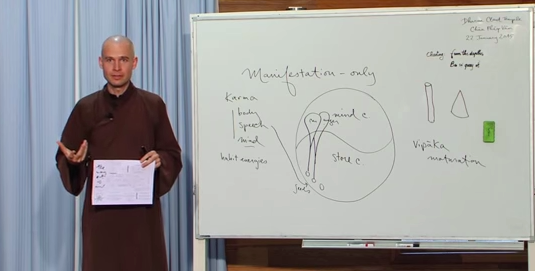 Dharma Cloud Temple
22 January
Chanting from the depths
Manifestation-only
Karma
body
speech
mind
habit energies
mind c
store c
seeds
Vipāka
maturation